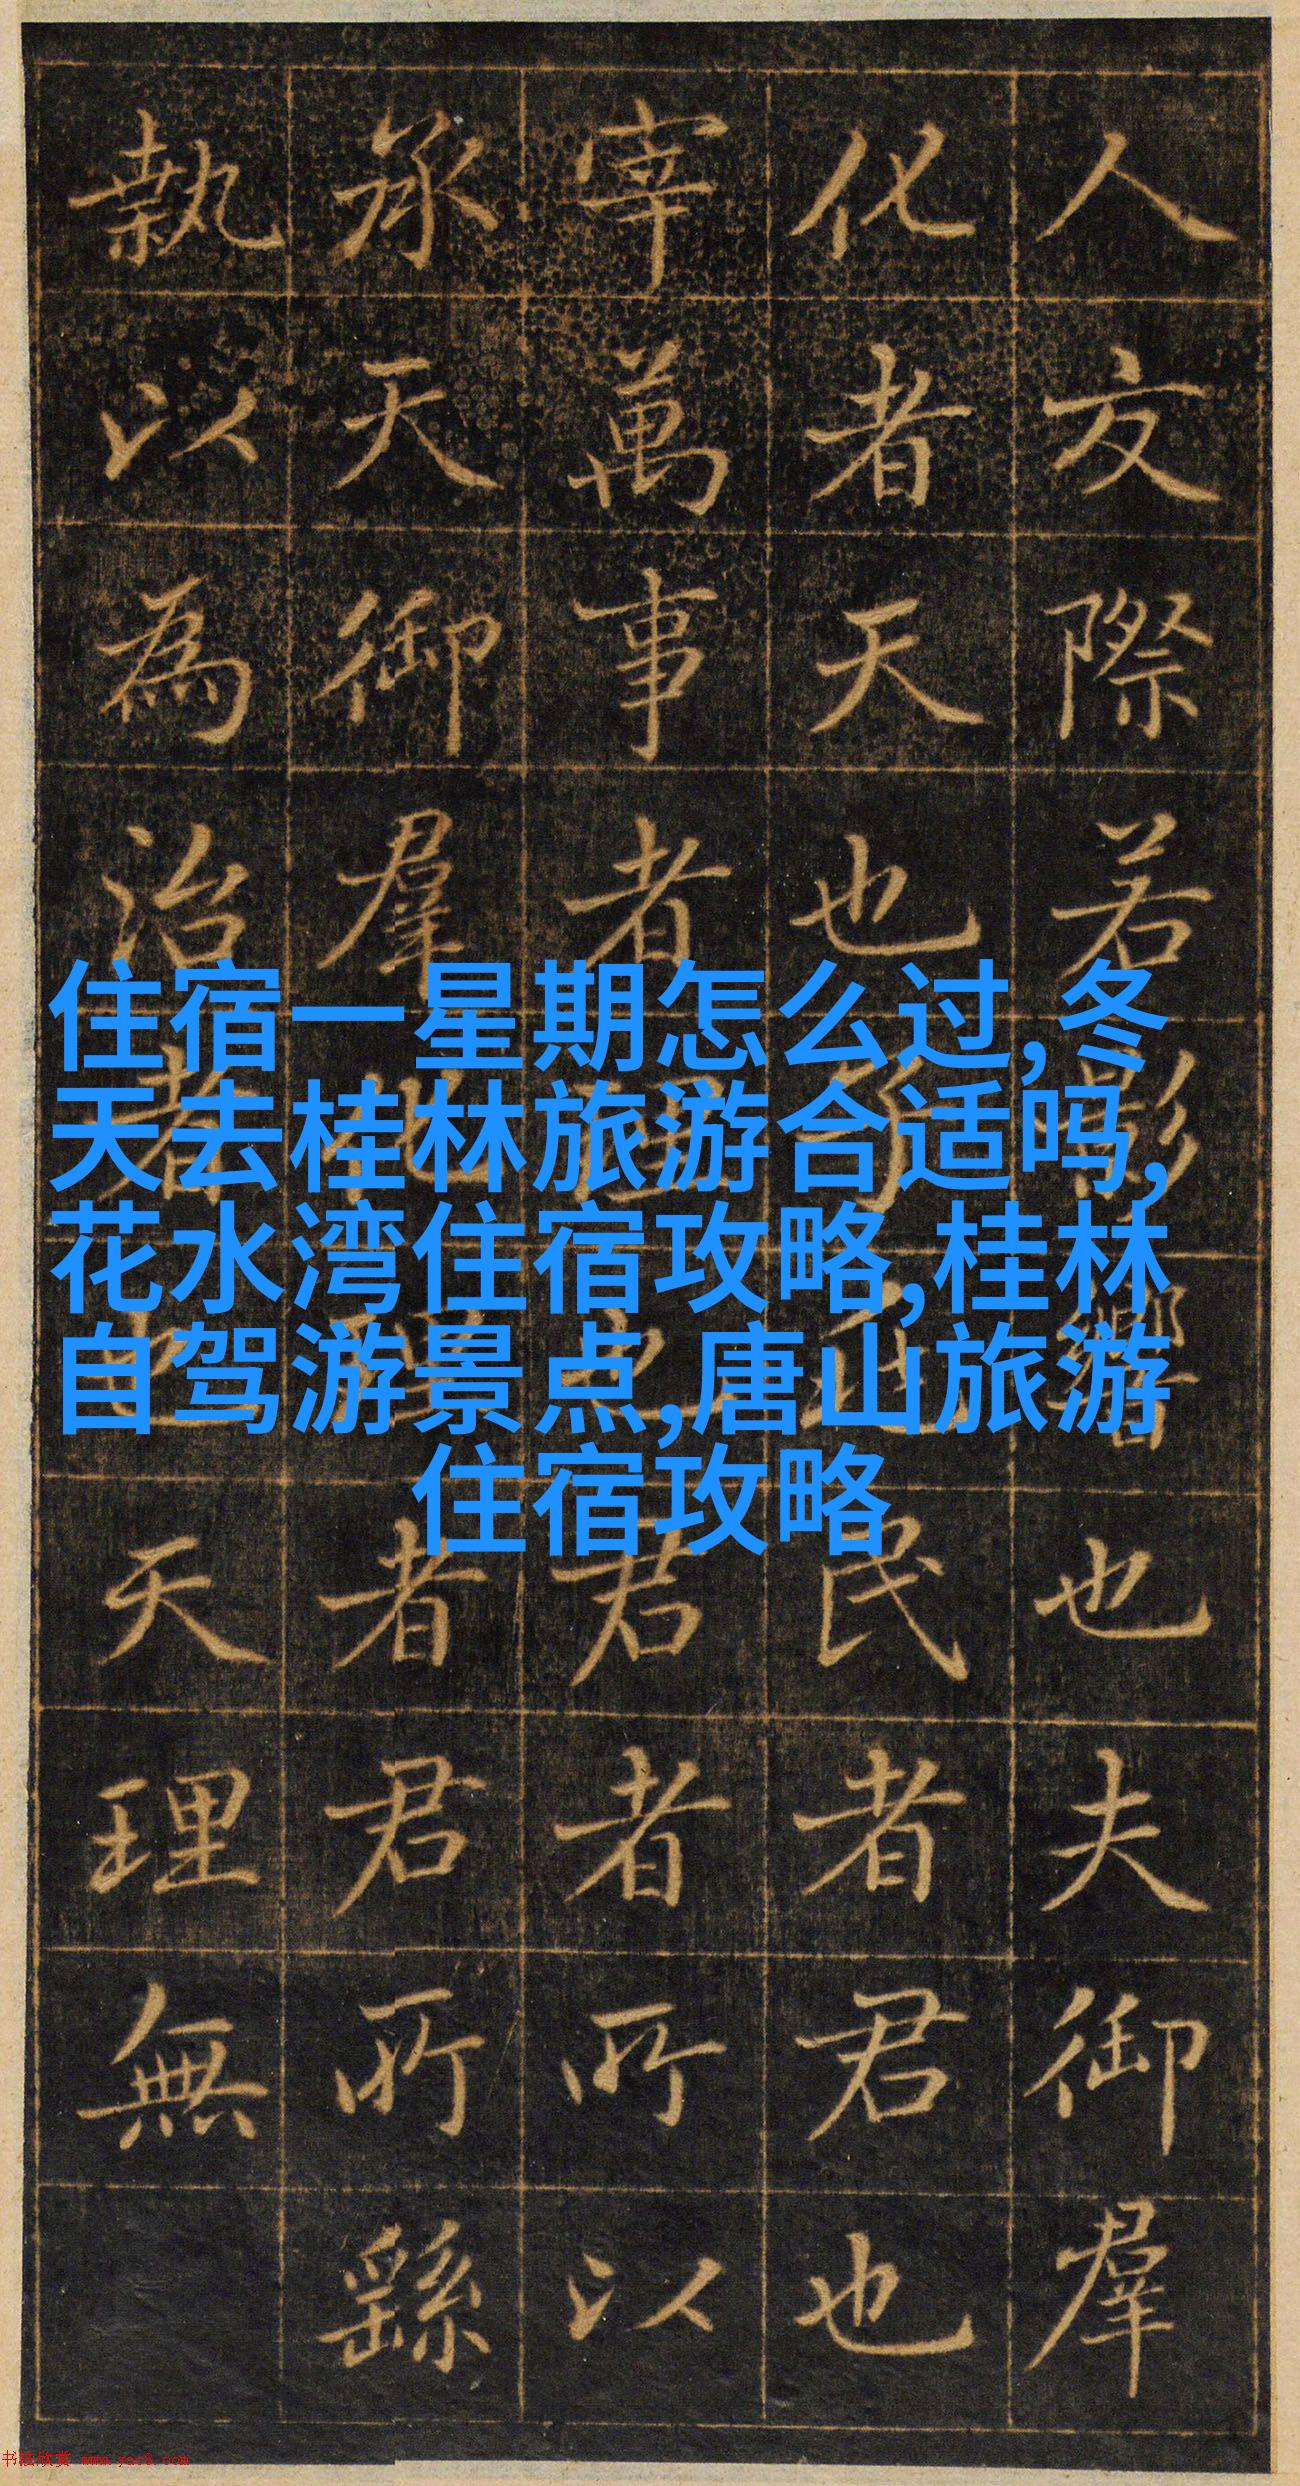 人友際若影響也夫御羣
化者天也民者君也
宰萬事者理也君者所以
承天御羣者君所繇
執以為治者也天理無
住宿一星期怎么过,冬
天去桂林旅游合适吗,
花水湾住宿攻略,桂林
自驾游景点,唐山旅游
住宿攻略
书法欣赏 www.yac8.com